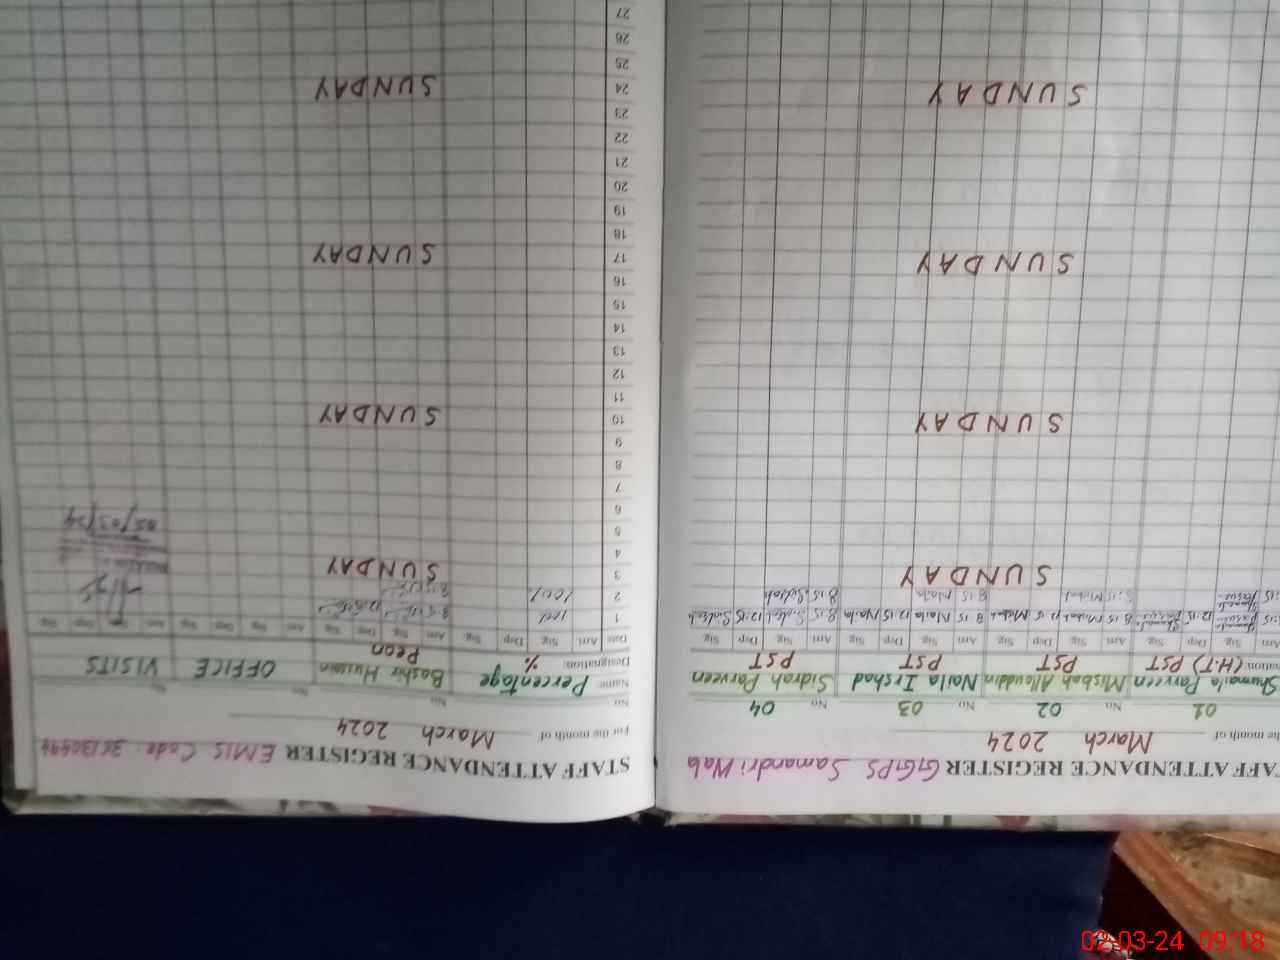 STAFF ATTENDANCE REGISTER EMIS Code:
For the month of March 2024
No. No. No. No.
Name Percentage Bashir Hussain OFFICE VISITS
Designation % Peon
Date Arr Sig Dep Sig Arr Sig Dep Sig Arr Sig Dep Sig Arr Sig Dep Sig
1 100%
2 100%
3 SUNDAY
4
5
6
7
8
9
10 SUNDAY
11
12
13
14
15
16
17 SUNDAY
18
19
20
21
22
23
24 SUNDAY
25
26
27
02/03/24
TAFF ATTENDANCE REGISTER GGPS Samandri Wala
the month of March 2024
01 No. 02 No. 03 No. 04
Shumaila Parveen Misbah Allauddin Naila Irshad Sidrah Parveen
nation (H.T) PST PST PST PST
Sig Dep Sig Arr Sig Dep Sig Arr Sig Dep Sig Arr Sig Dep Sig
12:15 8 15 Misbah 12 15 Misbah 8 15 Naila 12 15 Naila 8 15 Sidrah 12:15 Sidrah
8:15 Misbah 8 15 Naila 8 15 Sidrah
SUNDAY
SUNDAY
SUNDAY
SUNDAY
02-03-24 09:18